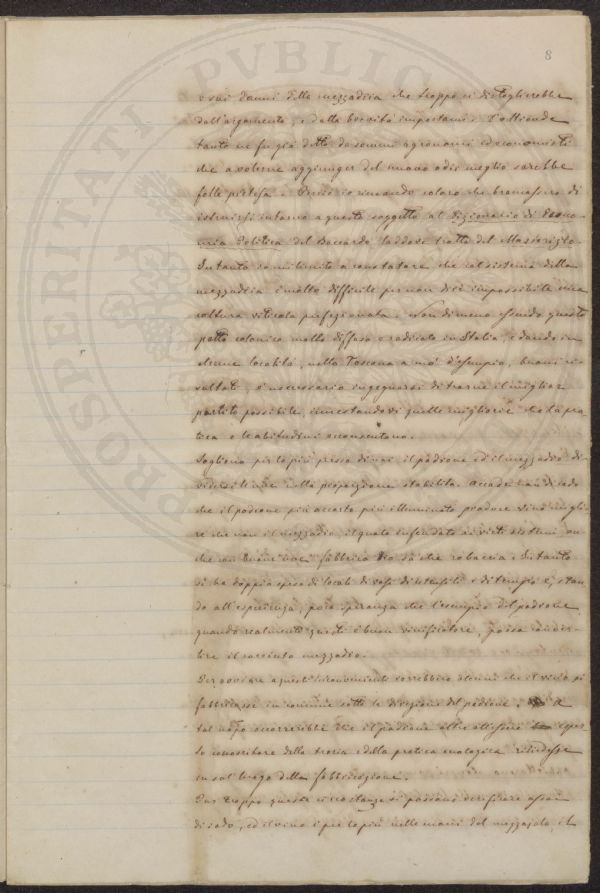 8
o sui danni della mezzadria che troppo ci distoglierebbe
dall'argomento, e dalla brevità impostami. D'altronde
tanto ne fu già detto da sommi agronomi ed economisti
che a volerne aggiunger del nuovo o dir meglio sarebbe
folle pretesa. Perciò io rimando coloro che bramassero di
istruirsi intorno a questo soggetto al Dizionario di Econo-
mia Politica del Boccardo laddove tratta del Masserizio.
Intanto io mi limito a constatare che col sistema della
mezzadria è molto difficile per non dire impossibile una
coltura viticola perfezionata. Non di meno essendo questo
patto colonico molto diffuso e radicato in Italia, e dando in
alcune località, nella Toscana a mo' d'esempio, buoni ri-
sultati, è necessario ingegnarsi di trarne il miglior
partito possibile, innestandovi quelle migliorie che la pra-
tica e le abitudini consentano.
Sogliono per lo più presso di noi il padrone ed il mezzadro di-
vidersi le uve nella proporzione stabilita. Accade non di rado
che il padrone più accorto più illuminato produce vino miglio-
re che non il mezzadro, il quale infeudato ai vieti sistemi, an-
che con buone uve fabbrica robaccia. Intanto
si ha doppia spesa di locali di vasi di utensili e di tempo e, stan-
do all'esperienza, poca speranza che l'esempio del padrone
quando realmente questi è buon vinificatore, possa conver-
tire il mezzadro.
Per ovviare a questi inconvenienti vorrebbero alcuni che il vino si
fabbricasse in comune sotto la direzione del padrone. A
tal uopo occorrerebbe che il padrone oltre all'essere
conoscitore della teoria e della pratica enologica risiedesse
in sul luogo della fabbricazione.
Pur troppo queste circostanze si possono verificare assai
di rado, ed il vino è per lo più nelle mani del mezzajolo, il